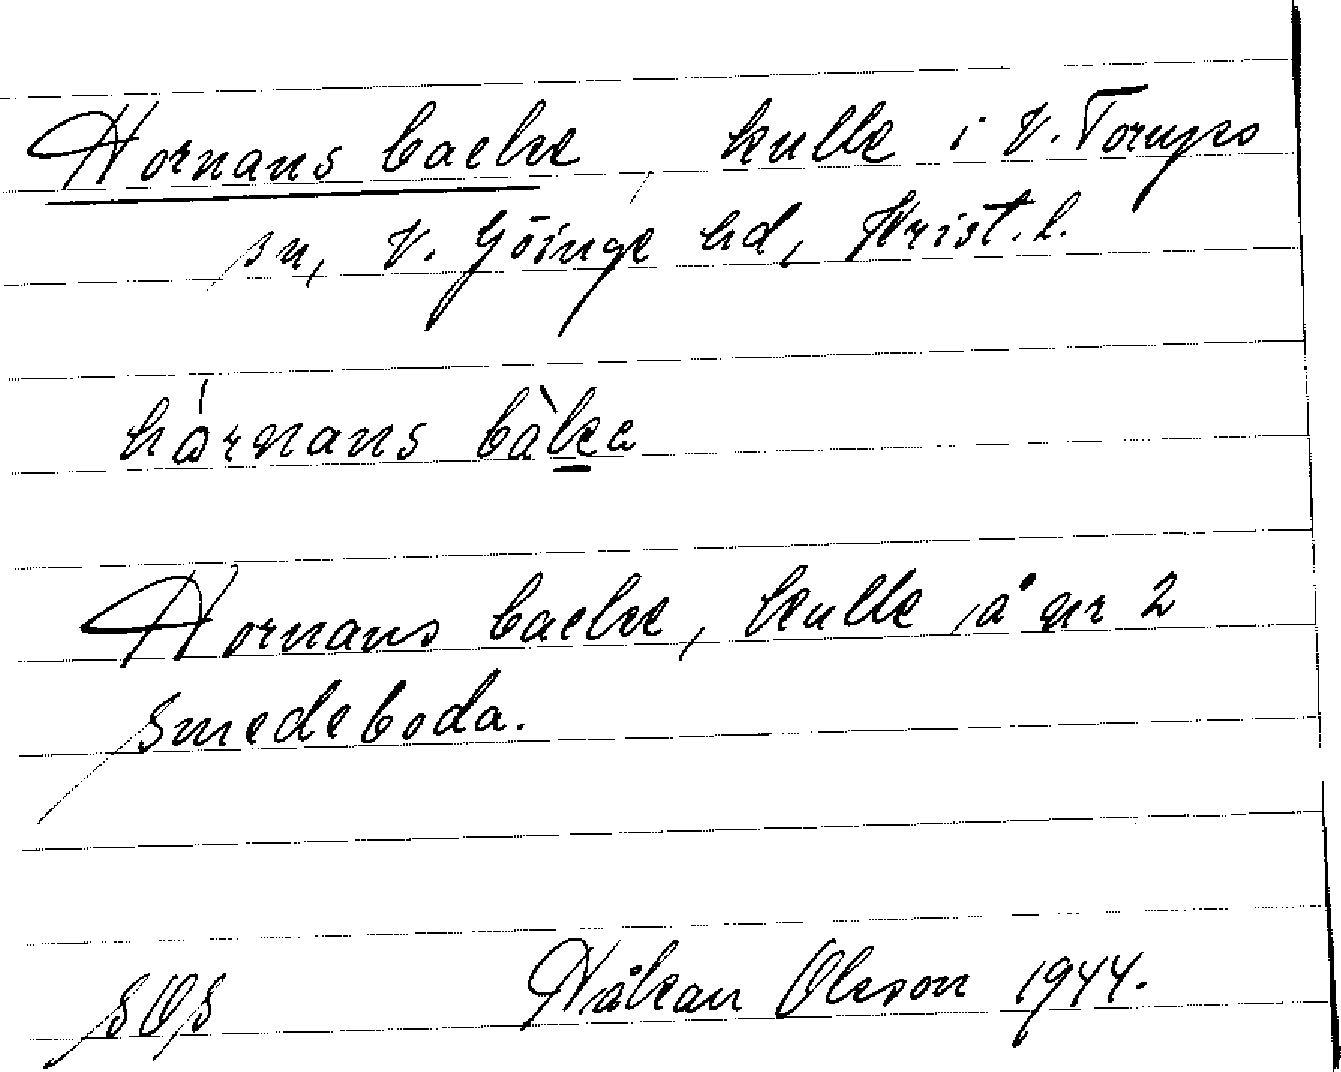 Hornans backe kulle i V. Torups
sn, V. Göinge hd, Krist. l.
hårnans bàka
Hornans backe, kulle å nr 2
Smedeboda.
SOS Håkan Olsson 1944.